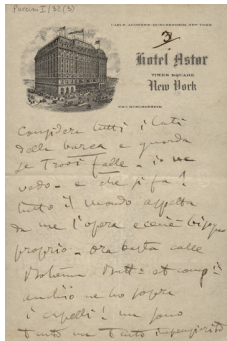 Puccini I/3(3)
CABLE ADDRESS
NEW YORK
3
Hotel Astor
TIMES SQUARE
New York
Considera tutti i lati
della barca e guarda
se trovi falle - io ne
vedo - e che si fa!
tutto il mondo aspetta
da me l'opera e ce n'è bisogno
proprio. Ora basta colle
Bohème Butt: et comp:i
anch'io ne ho sopra
i capelli! ma sono
tanto ma tanto impensierito